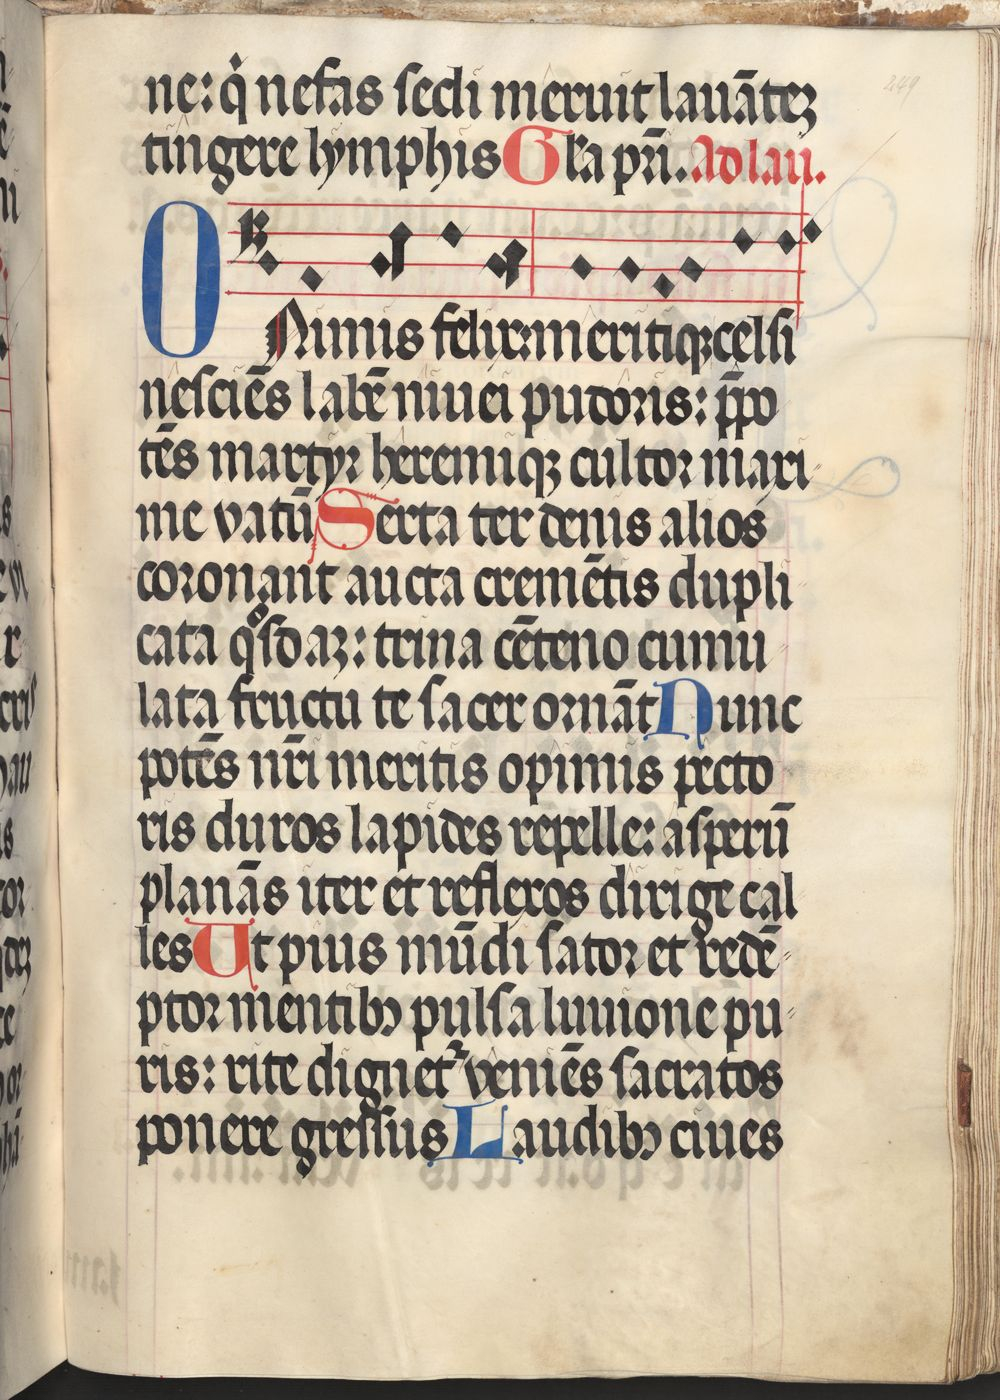 ne: q̇ nefas sedi meruit lauātēz
tingere lymphis Gl̄a pr̄i. Ad lau.
O Nimis felix: meritiqz celsi
nesciēs labē niuei pudoris: p̄po
tēs martyr heremiqz cultor maxi
me vatū Serta ter denis alios
coronant aucta cremētis dupli
cata qͦsdaz: trina cēteno cumu
lata fructu te sacer ornāt Nunc
potēs nr̄i meritis opimis pecto
ris duros lapides repelle: asperū
planās iter et reflexos dirige cal
les Ut pius mūdi sator et redē
ptor mentibꝯ pulsa luuione pu
ris: rite dignetᷣ veniēs sacratos
ponere gressus Laudibꝯ ciues
249